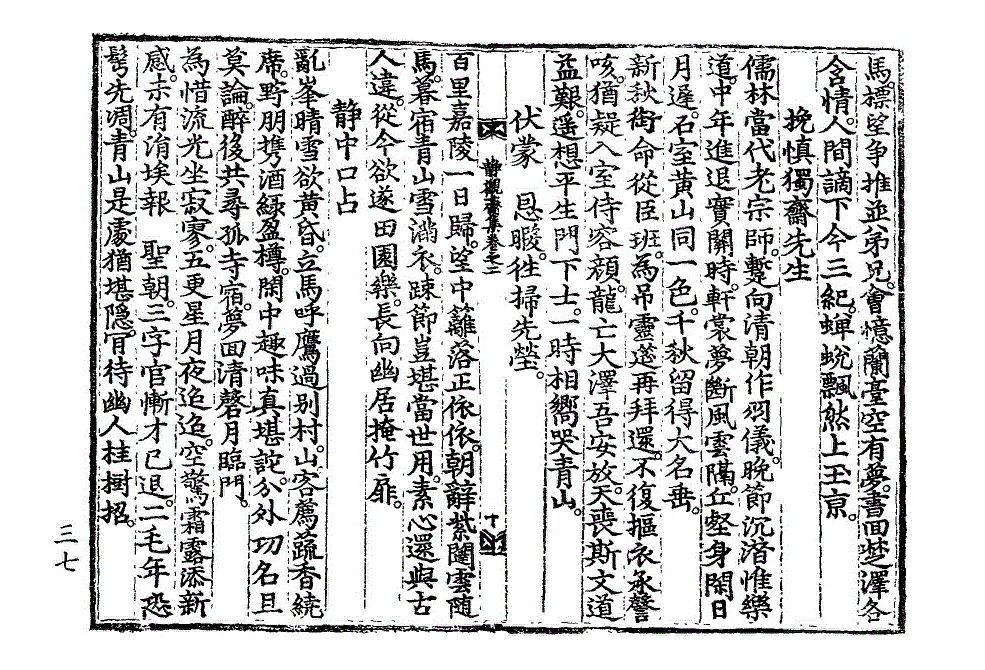 馬。標望争推並弟兄。會憶蘭臺空有夢。書回楚澤各
含情。人間謫下今三紀。蟬蛻飄然上玉京。
挽慎獨齋先生
儒林當代老宗師。蹔向清朝作羽儀。晚節沉淯惟樂
道。中年進退實關時。軒裳夢斷風雲隔。丘壑身閑日
月遲。石室黄山同一色。千秋留得大名垂。
新秋銜命從臣班。為吊靈筵再拜還。不復摳衣承謦
咳。猶疑入室侍容顔。龍亡大澤吾安放。天喪斯文道
益艱。遥想平生門下士。一時相嚮哭青山。
伏蒙　恩暇。徃掃先塋。
靜觀齋集卷之二
十
百里嘉陵一日歸。望中籬落正依依。朝辭紫闥雲随
馬。暮宿青山雪滿衣。踈節豈堪當世用。素心還與古
人違。從今欲遂田園樂。長向幽居掩竹扉。
静中口占
亂峯晴雪欲黄昏。立馬呼鷹過别村。山客薦蔬香繞
席。野朋携酒緑盈樽。閑中趣味真堪詫。分外功名且
莫論。醉後共尋孤寺宿。夢回清磬月臨門。
為惜流光坐寂寥。五更星月夜迢迢。空驚霜露添新
感。未有涓埃報　聖朝。三字官慚才已退。二毛年恐
髩先凋。青山是處猶堪隠。肯待幽人桂樹招。
三七